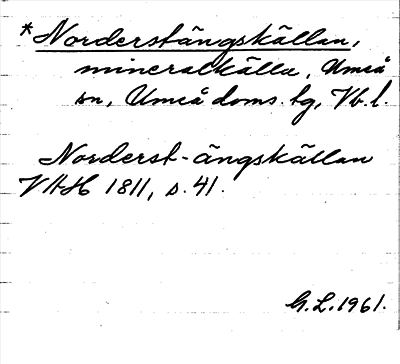 *Norderstängskällan,
mineralkälla, Umeå
sn, Umeå doms. tg, Vb. l.
Norderst-ängskällan
VAH 1811, s. 41.
G.L. 1961.